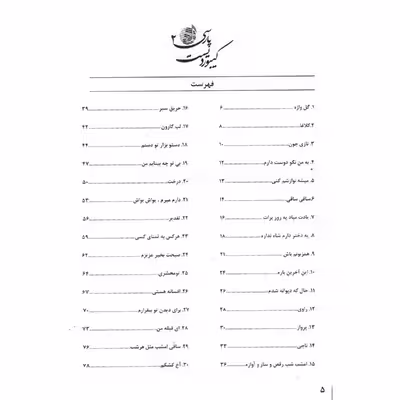 پارسی
کیبوردیست ۲
فهرست
۱. گل واژه ۶
۲. کلاغا ۸
۳. نازی جون ۱۰
۴. به من نگو دوست دارم ۱۲
۵. میشه نوازشم کنی ۱۳
۶. ساقی ساقی ۱۴
۷. یادت میاد یه روز برات ۱۶
۸. یه دختر دارم شاه نداره ۱۸
۹. همزبونم باش ۲۱
۱۰. این آخرین باره ۲۴
۱۱. حال که دیوانه شدم ۲۶
۱۲. راوی ۲۸
۱۳. پرواز ۳۰
۱۴. ناجی ۳۳
۱۵. امشب شب رقص و ساز و آوازه ۳۶
۱۶. حریق سبز ۳۹
۱۷. لب کارون ۴۲
۱۸. دستتو بزار تو دستم ۴۴
۱۹. بی تو چه بینایم من ۴۷
۲۰. درخت ۵۰
۲۱. دارم میرم ، یواش یواش ۵۳
۲۲. تقدیر ۵۶
۲۳. هرکس به تمنای کسی ۵۹
۲۴. صبحت بخیر عزیزم ۶۲
۲۵. تومحشری ۶۴
۲۶. افسانه هستی ۶۷
۲۷. برای دیدن تو بیقرارم ۷۰
۲۸. ای قبله من ۷۳
۲۹. ساقی امشب مثل هرشب ۷۶
۳۰. آخ کشگیم ۷۸
۵